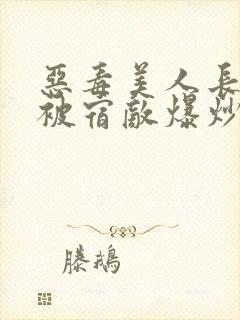 惡毒美人長
被宿敵爆炒
滕鵝